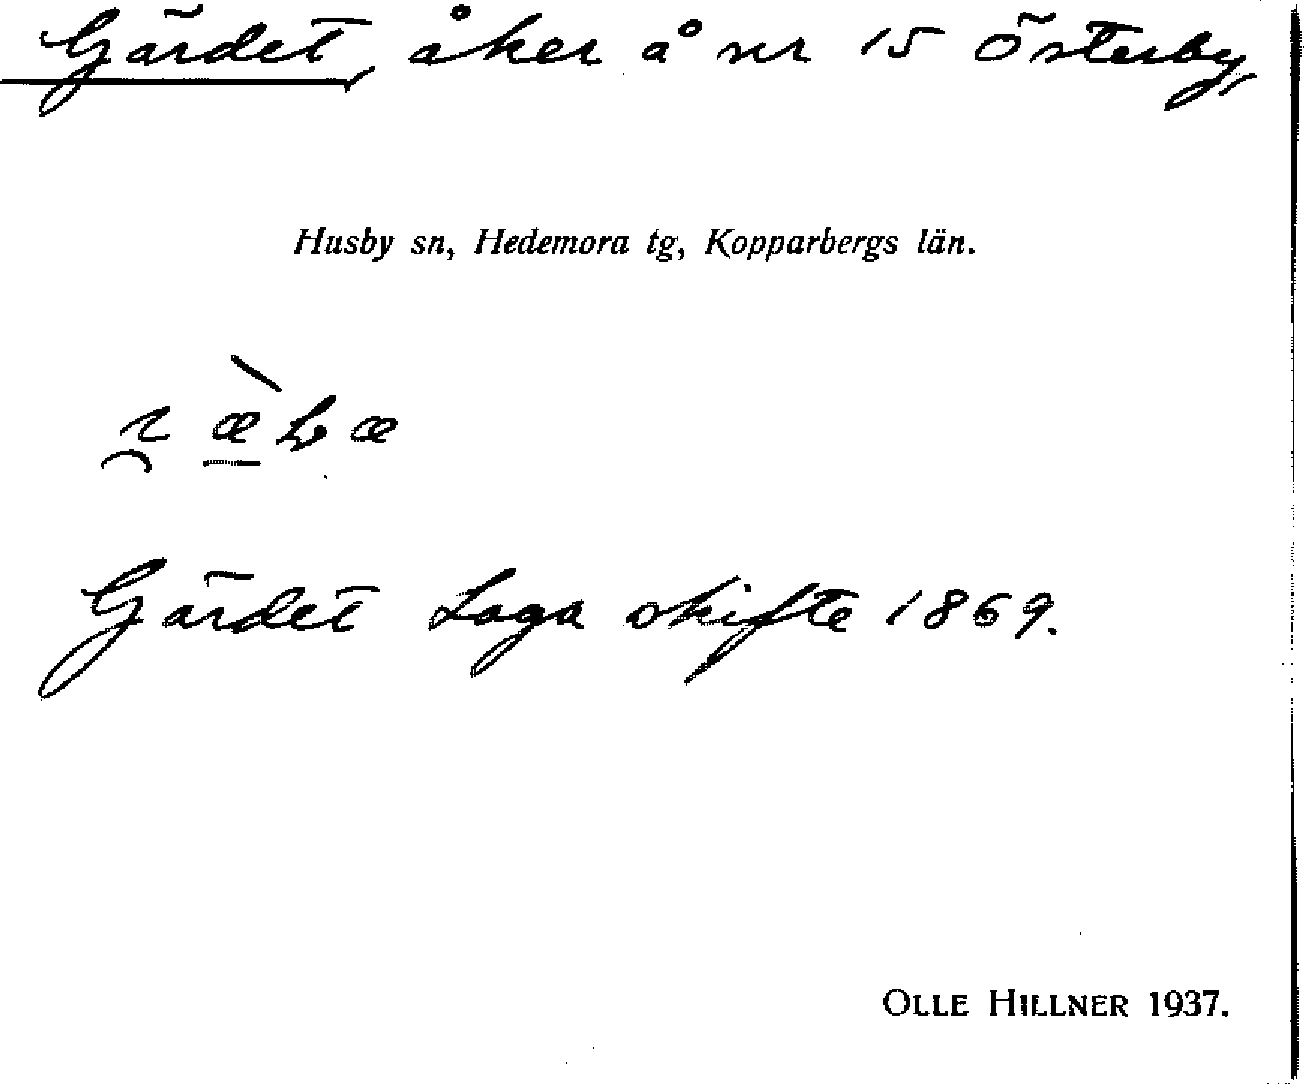 Gärdet, åker å nr 15 Österby,
Husby sn, Hedemora tg, Kopparbergs län.
Gärdet Laga skifte 1869.
OLLE HILLNER 1937.